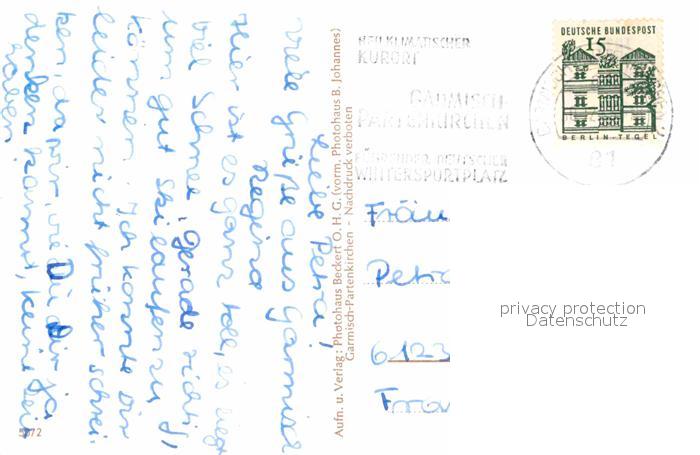 Liebe Petra,
viele Grüße aus Garmisch
Regina
Hier ist es ganz toll, es liegt
viel Schnee, gerade richtig,
um gut Skilaufen zu
können. Ich konnte Dir
leider nicht früher schrei-
ken, da wir, wie Du Dir ja
denken kannst, keine Zeit
haben.
5672
Aufn. u. Verlag: Photohaus Beckert O. H. G. (vorm. Photohaus B. Johannes)
Garmisch-Partenkirchen - Nachdruck verboten
HEILKLIMATISCHER
KURORT
GARMISCH-
PARTENKIRCHEN
FÜHRENDER DEUTSCHER
WINTERSPORTPLATZ
DEUTSCHE BUNDESPOST
15
BERLIN-TEGEL
Fräu
Petra
6123
Fra
privacy protection
Datenschutz